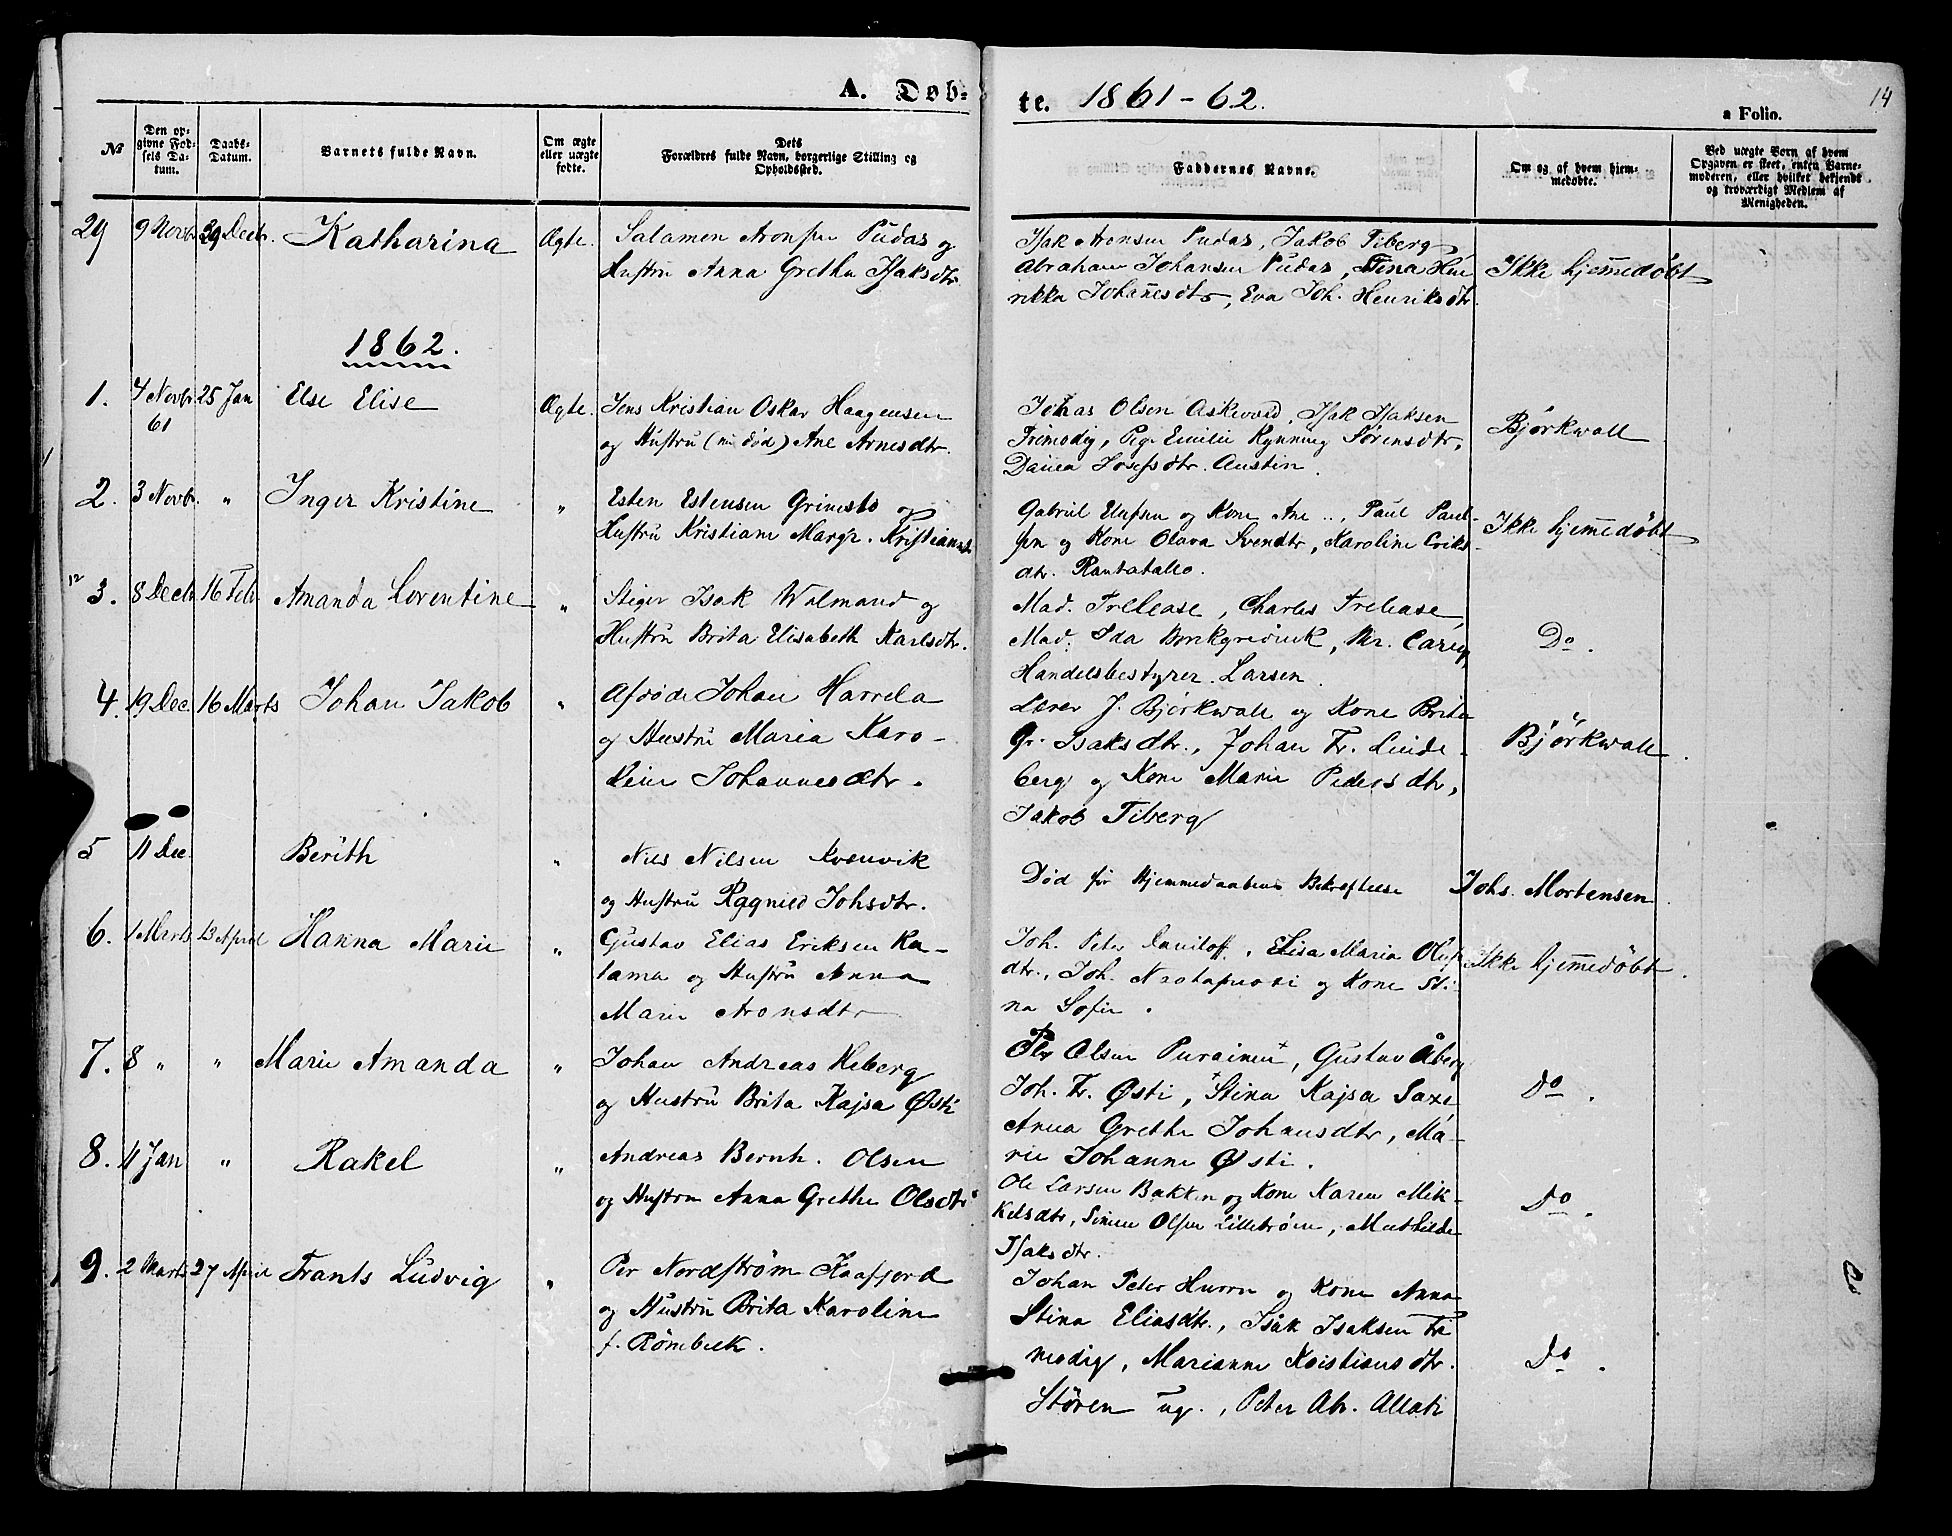 A. Døb-
te. 1861-62.
14
a Folio.
№
Den op-
givne Fød-
sels Da-
tum.
Daabs-
Datum.
Barnets fulde Navn.
Om ægte
eller uægte
fødte.
Dets
Forældres fulde Navn, borgerlige Stilling og
Opholdssted.
Faddernes Navne.
Om og af hvem hjem-
medøbte.
Ved uægte Børn af hvem
Opgaven er skeet, enten Barne-
moderen, eller hvilket bekjendt
og troværdigt Medlem af
Menigheden.
29 9 Novbr 29 Decbr. Katharina Ægte.
Salamon Aronsen Pudas og
Hustru Anna Grethe Isaksdtr
Isak Aronsen Pudas, Jakob Tiberg
Abraham Johansen Pudas, Stina Hen
rikka Johannesdtr, Eva Joh. Henriksdtr.
Ikke hjemmedøbt
1862.
1. 4 Novbr 61 25 Jan Else Elise Ægte.
Jens Kristian Oskar Haagensen
og Hustru (nu død) Ane Arnesdtr.
Johas Olsen Askevold, Isak Isaksen
Frimodig, Pige Emilie Kynning Sørensdtr,
Danea Josefsdtr. Austin.
Bjørkwall
2. 3 Novbr. " Inger Kristine "
Esten Estensen Grimsbo og
Hustru Kristiane Margr. Kristiansd.
Gabriel Elefsen og Kone Ane .., Paul Paul-
sen og Kone Olava Svendtr, Karoline Eriks-
dtr. Rantatallo.
Ikke hjemmedøbt
12 3. 8 Decb 16 Feb. Amanda Lorentine "
Stiger Isak Walmand og
Hustru Brita Elisabeth Karlsdtr.
Mad. Trelease, Charles Trelease,
Mad. Ida Bonkgrevink, Mr. Carey
Handelsbestyrer Larsen.
Do.
4. 19 Dec. 16 Marts Johan Jakob "
Afdøde Johan Harrela
og Hustru Maria Karo-
line Johannesdtr.
Lærer J. Bjørkwall og Kone Brita
Gr. Isaksdtr., Johan Fr. Linde-
berg og Kone Marie Pedersdtr,
Jakob Tiberg
Bjørkwall.
5 11 Dec Berith "
Nils Nilsen Kvenvik
og Hustru Ragnild Johsdtr.
Død før Hjemmedaabens Bekræftelse
Johs. Mortensen.
6. 1 Marts 13 April Hanna Marie "
Gustav Elias Eriksen Ka-
lama og Hustru Anna
Marie Aronsdtr
Joh. Peter Daniloff, Elisa Maria Olufs
dtr., Joh. Niotapuori og Kone Sti-
na Sofie.
Ikke hjemmedøbt.
7. 8 " " Marie Amanda "
Johan Andreas Heberg
og Hustru Brita Kajsa Østi
Per Olsen Purainen, Gustav Åberg
Joh. Fr. Østi, Stina Kajsa Saxe
Anna Grethe Johansdtr, Ma-
rie Johanne Østi.
Do.
8. 11 Jan " Rakel "
Andreas Bernh. Olsen
og Hustru Anna Grethe Olsdtr
Ole Larsen Bakken og Kone Karen Mik-
kelsdtr, Simen Olsen Lillestrøm, Mathilde
Isaksdtr.
Do.
9. 2 Marts 27 April Frants Ludvig "
Per Nordstrøm Kaafjord
og Hustru Brita Karoline
f. Rømbeck.
Johan Peter Hurru og Kone Anna
Stina Eliasdtr., Isak Isaksen Fri
modig, Marianne Kristiansdtr.
Støren ug., Peter Abr. Allati
Do.